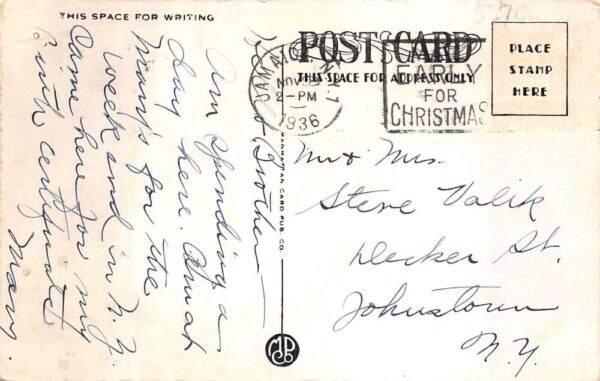 THIS SPACE FOR WRITING
POST CARD
THIS SPACE FOR ADDRESS ONLY
PLACE
STAMP
HERE
JAMAICA, N.Y. 1
NOV
2-PM
1936
EARLY
FOR
CHRISTMAS
& Brother
Am spending a
day here. Am at
Mary's for the
week and in N.Y.
Came here for my
birth certificate
Mary.
MANHATTAN CARD PUB. CO.
Mr & Mrs.
Steve Valik
Decker St.
Johnstown
N.Y.
5.70